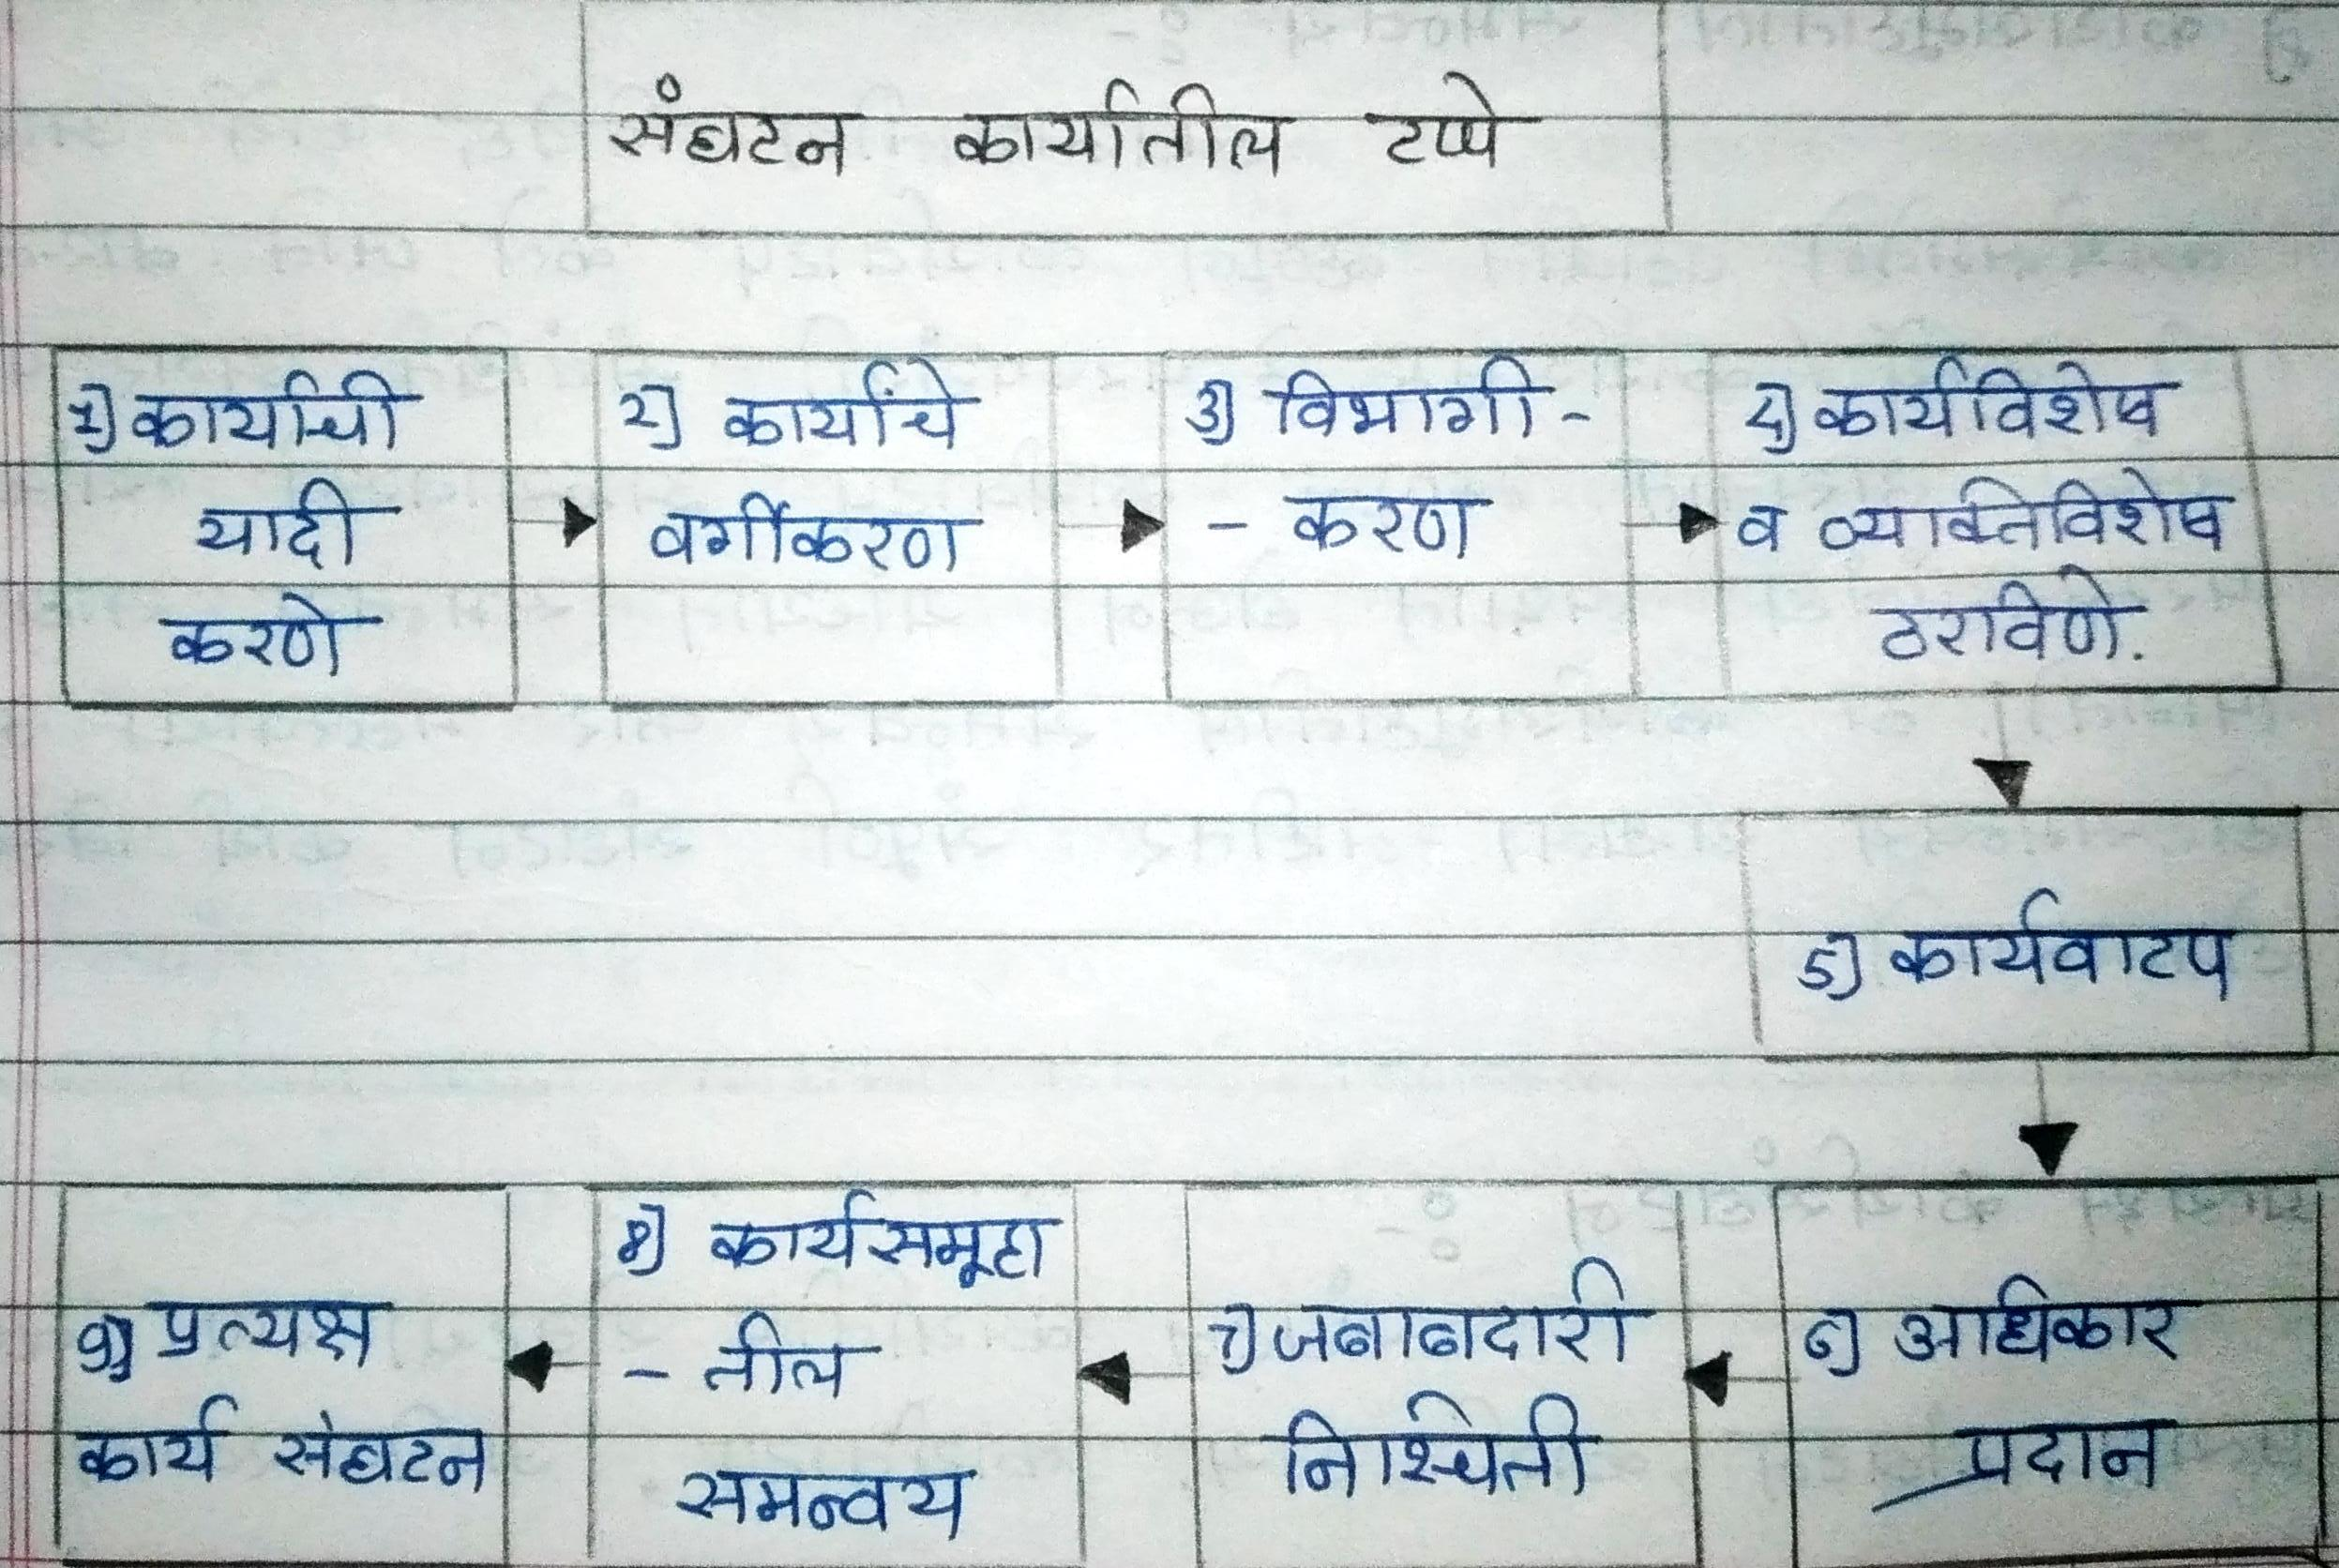 संघटन कार्यातील टप्पे
1) कार्याची
यादी
करणे
2) कार्यांचे
वर्गीकरण
3) विभागी-
- करण
4) कार्यविशेष
व व्यक्तिविशेष
ठरविणे.
5) कार्यवाटप
6) अधिकार
प्रदान
7) जबाबदारी
निश्चिती
8) कार्यसमूहा
- तील
समन्वय
9) प्रत्यक्ष
कार्य संघटन